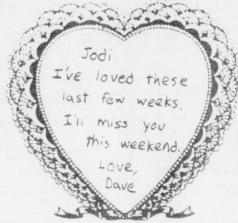 Jodi
I've loved these
last few weeks.
I'll miss you
this weekend.
Love,
Dave